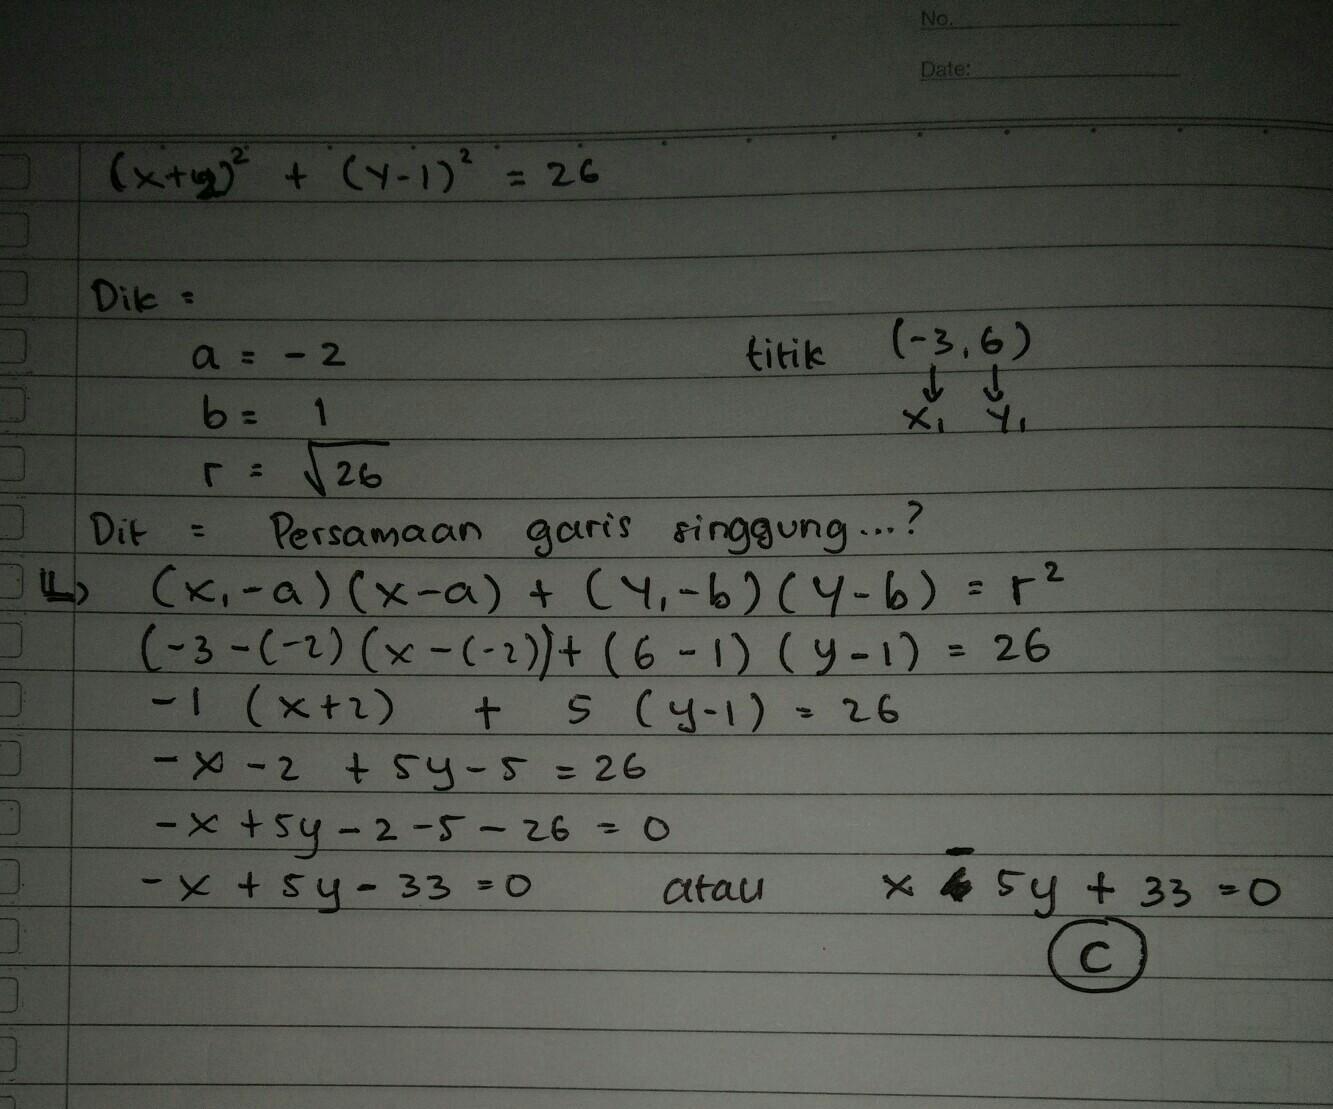 No.
Date:
(x+y)² + (y-1)² = 26
Dik =
a = -2 titik (-3,6)
b = 1 ↓ ↓ x₁ y₁
r = √26
Dit = Persamaan garis singgung...?
(x₁-a)(x-a) + (y₁-b)(y-b) = r²
(-3-(-2)(x-(-2))+(6-1)(y-1) = 26
-1 (x+2) + 5 (y-1) = 26
-x-2 + 5y-5 = 26
-x+5y-2-5-26 = 0
-x+5y-33=0 atau x - 5y + 33 =0
C